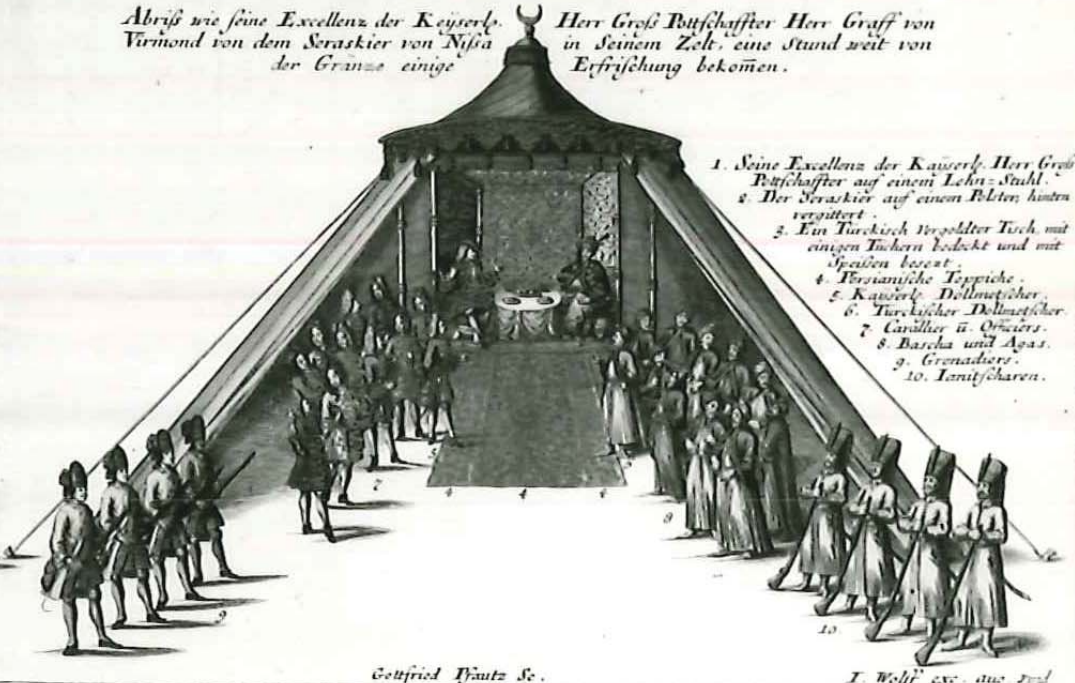 Abriſs wie ſeine Excellenz der Keÿserls. Herr Groß Pottſchaffter Herr Graff von
Virmond von dem Seraskier von Niſsa in Seinem Zelt, eine Stund weit von
der Gränze einige Erfriſchung bekom̄en.
1. Seine Excellenz der Kaÿserls. Herr Groß
Pottſchaffter auf einem Lehn=Stuhl.
2. Der Seraskier auf einem Polster, hinten
vergittert.
3. Ein Türckisch Vergoldter Tisch, mit
einigen Tüchern bedeckt und mit
Speiſsen beſezt.
4. Persianiſche Teppiche.
5. Kaÿserls. Dollmetscher.
6. Türckischer Dollmetſcher.
7. Cavallier ū. Officiers.
8. Bascha und Agas.
9. Grenadiers.
10. Ianitſcharen.
5
7
4 4 4
8
9
10.
Gottfried Pfautz Sc. I. Wolff exc. aug. vind